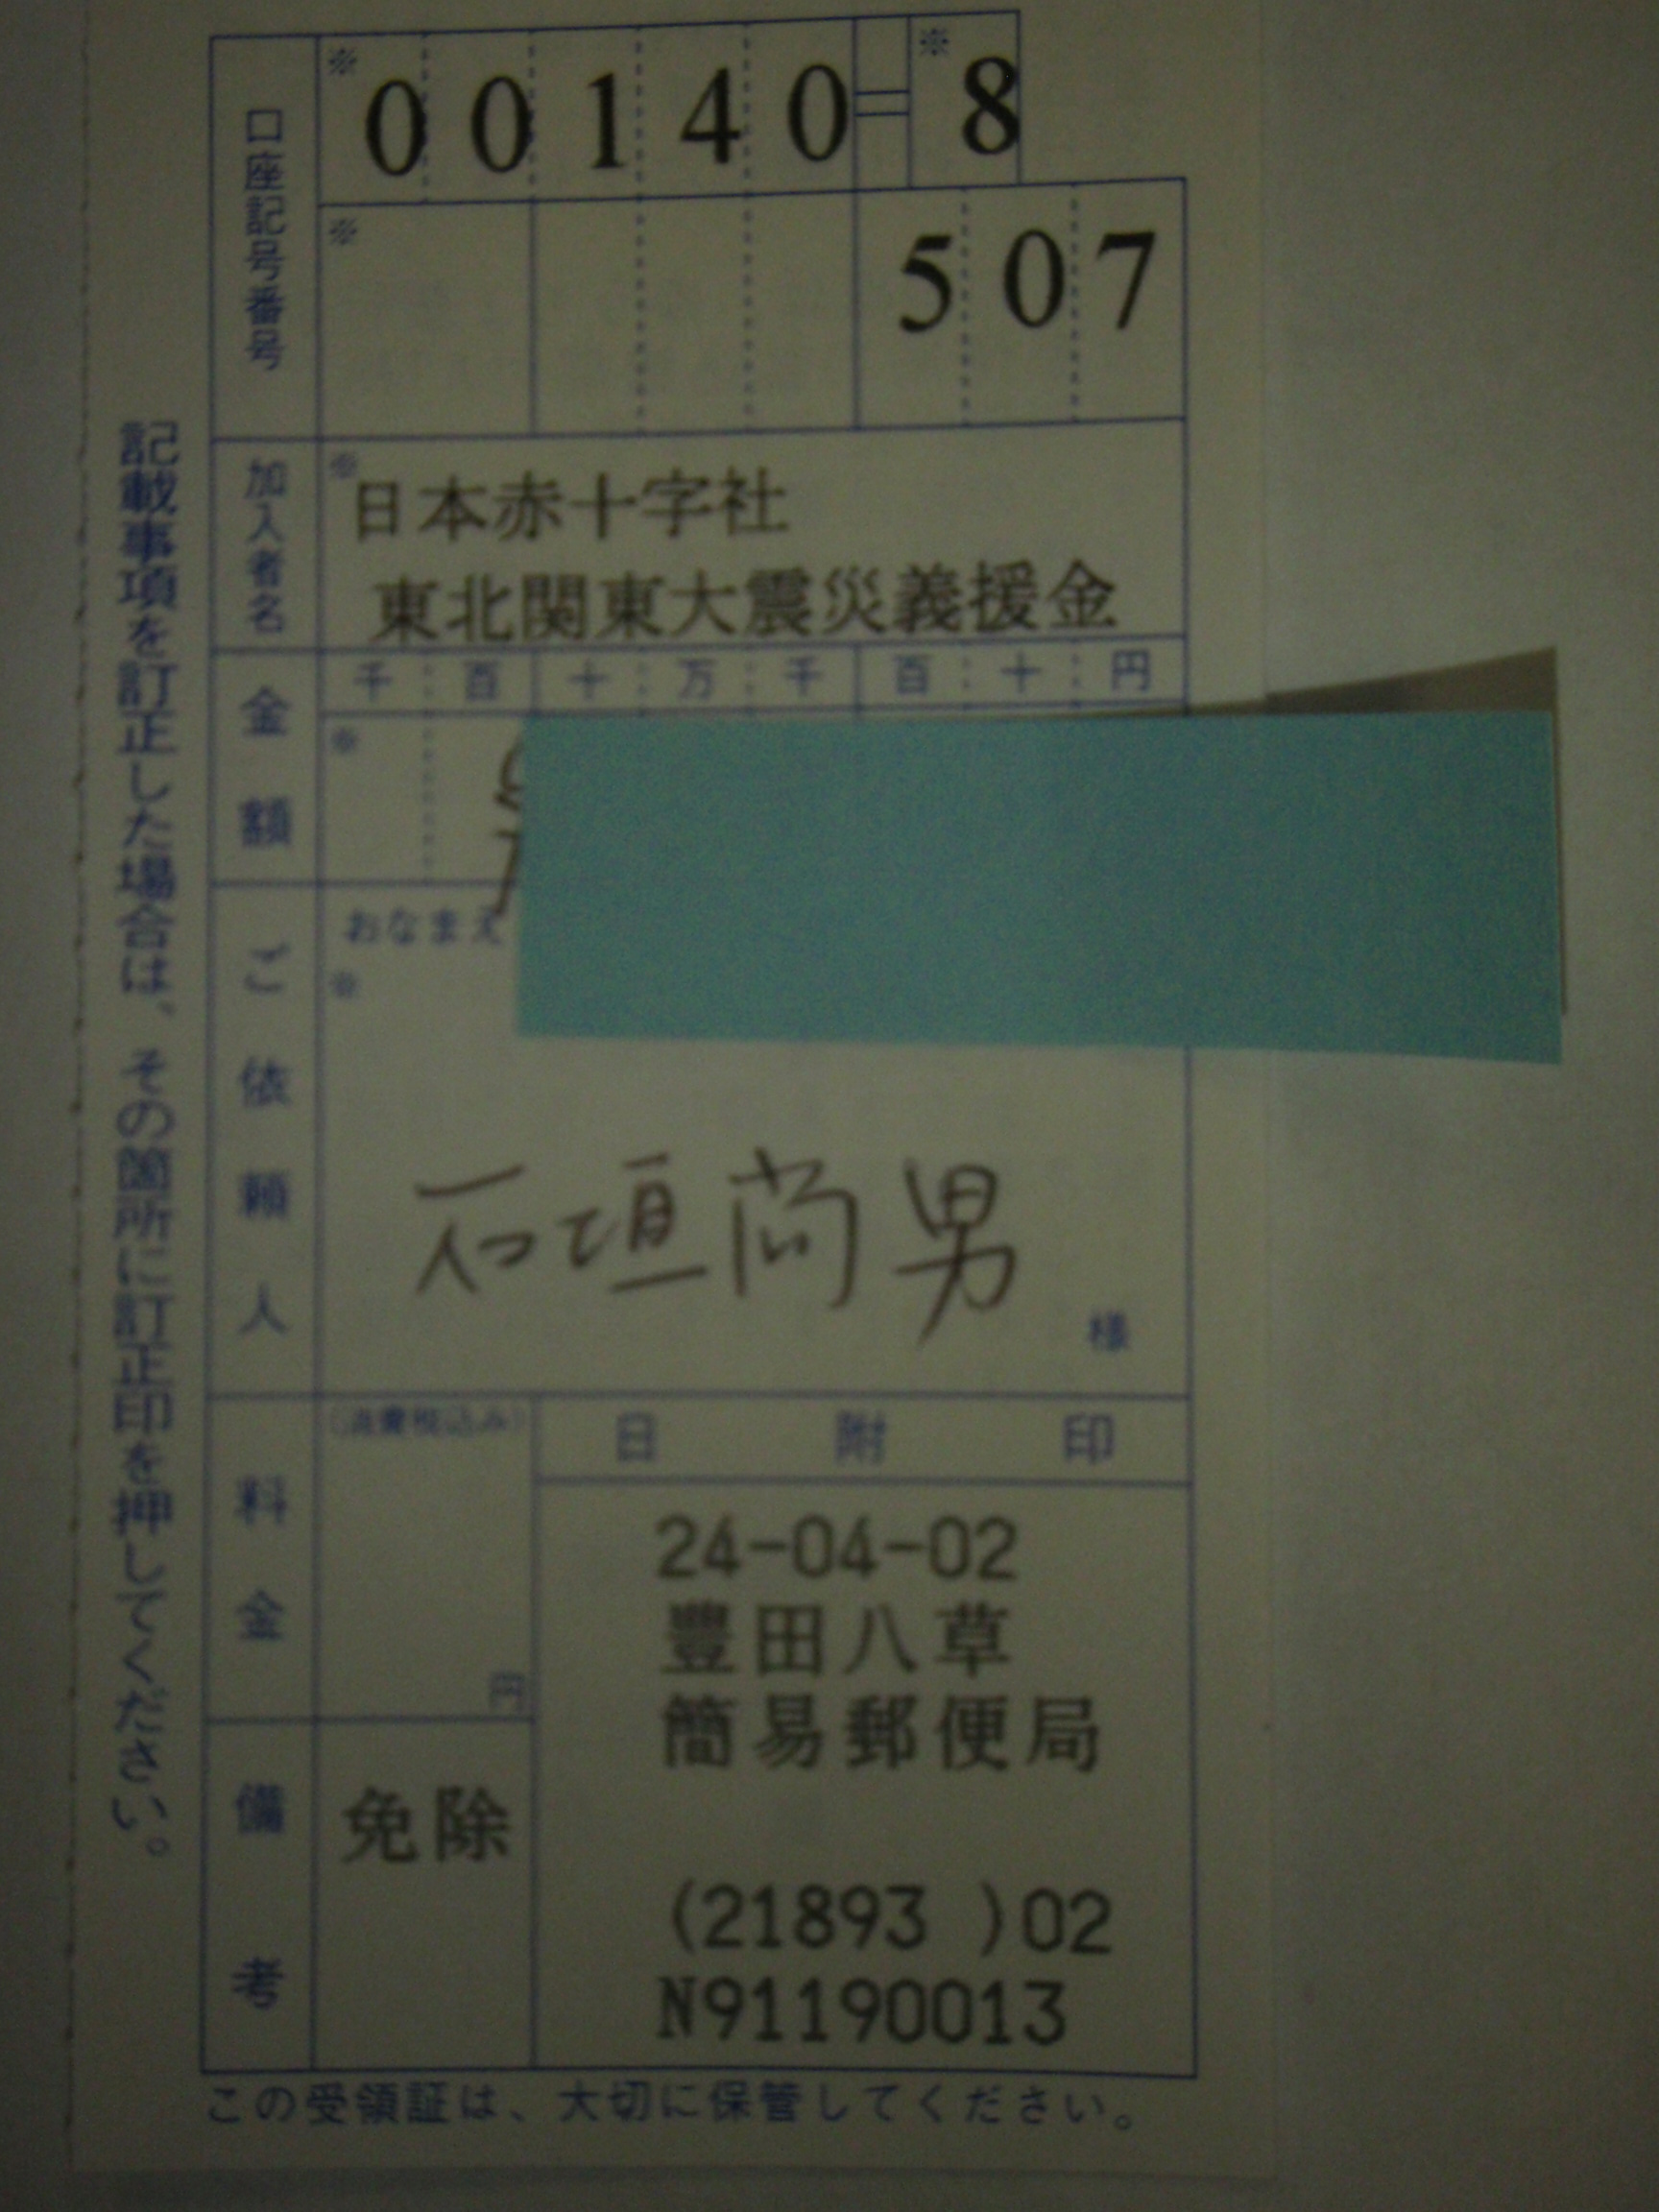 口座記号番号
※ 00140=※ 8
※ 507
加入者名
※日本赤十字社
東北関東大震災義援金
金額
千百十万千百十円
※
ご依頼人
おなまえ
※
石垣尚男
様
料金
(消費税込み)
円
日附印
24-04-02
豊田八草
簡易郵便局
(21893 )02
N91190013
備考
免除
記載事項を訂正した場合は、その箇所に訂正印を押してください。
この受領証は、大切に保管してください。